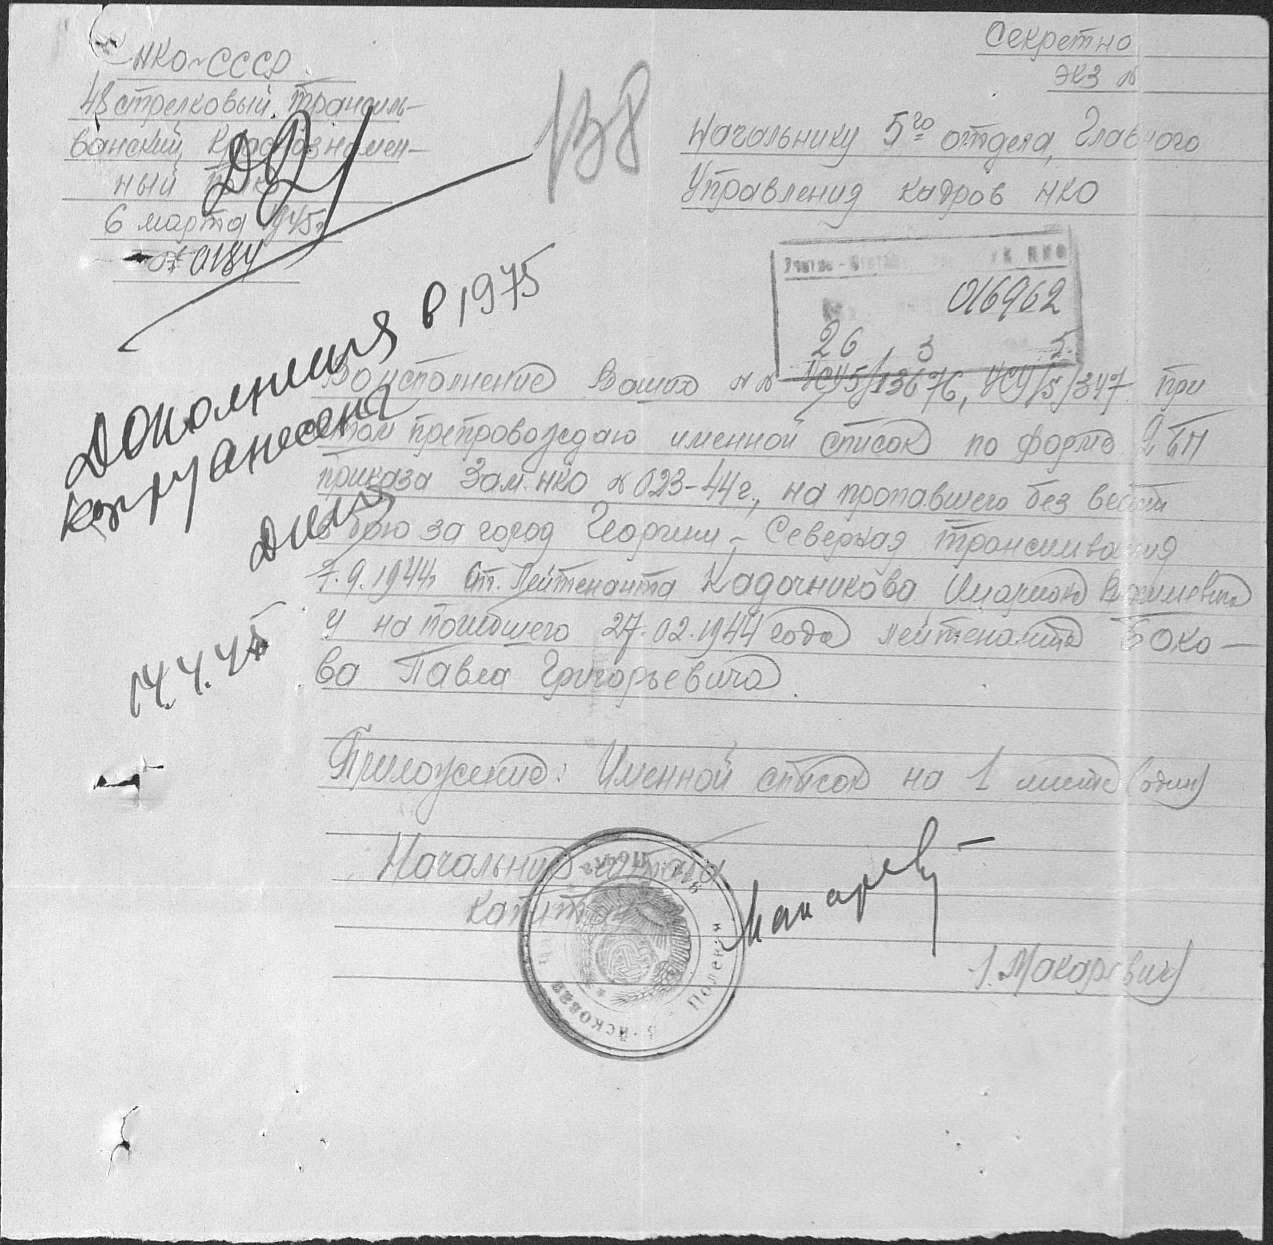 НКО-СССР
48 стрелковый трансиль-
ванский Краснознамен-
ный полк
6 марта 1945г
№ 0184
Секретно
экз №
138
Начальнику 5го отдела, Главного
Управления кадров НКО
016962
26 3 5.
Дополнения в 1975
картанесены
14.4.45
Во исполнение Ваших №№ 13676, /5/347 при
этом препровождаю именной список по форме 2 БП
приказа Зам. НКО № 023-44г., на пропавшего без вести
в бою за город Георгии - Северная Трансильвания
7.9.1944г Ст. Лейтенанта Кадочникова
и на погибшего 27.02.1944 года лейтенанта Боко-
ва Павла Григорьевича.
Приложение: Именной список на 1 листе (один)
Начальник штаба
капитан
Макаревич
Полевая
Войсковая часть
/. Макаревич/